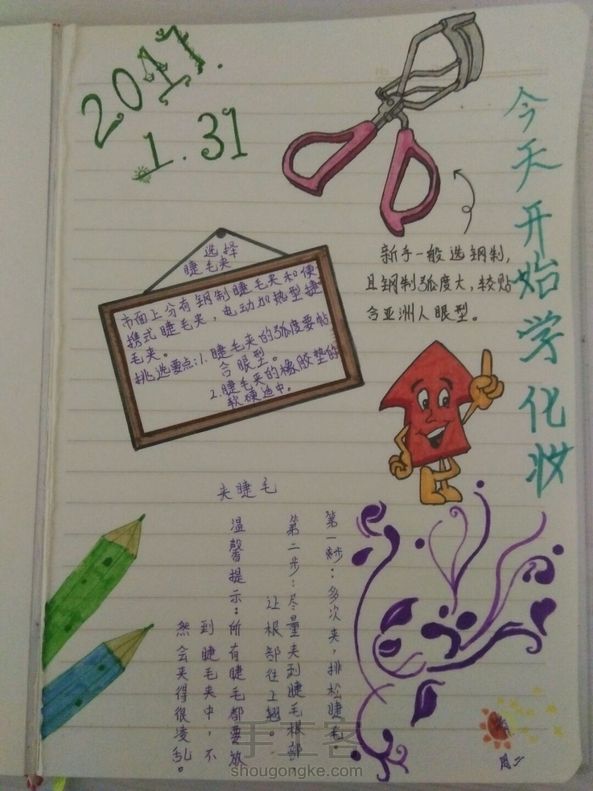 2017.
1.31
今天开始学化妆
新手一般选钢制,
且钢制弧度大,较贴
合亚洲人眼型。
选择
睫毛夹
市面上分有钢制睫毛夹和便
携式睫毛夹,电动加热型捷
毛夹。
挑选要点:1.睫毛夹的弧度要帖
合眼型。
2.睫毛夹的橡胶垫的
软硬适中。
夹睫毛
第一步:多次夹,排松睫毛。
第二步:尽量夹到睫毛根部
让根部往上翘。
温馨提示:所有睫毛都要放
到睫毛夹中,不
然会夹得很凌乱。
周二
手工客
shougongke.com